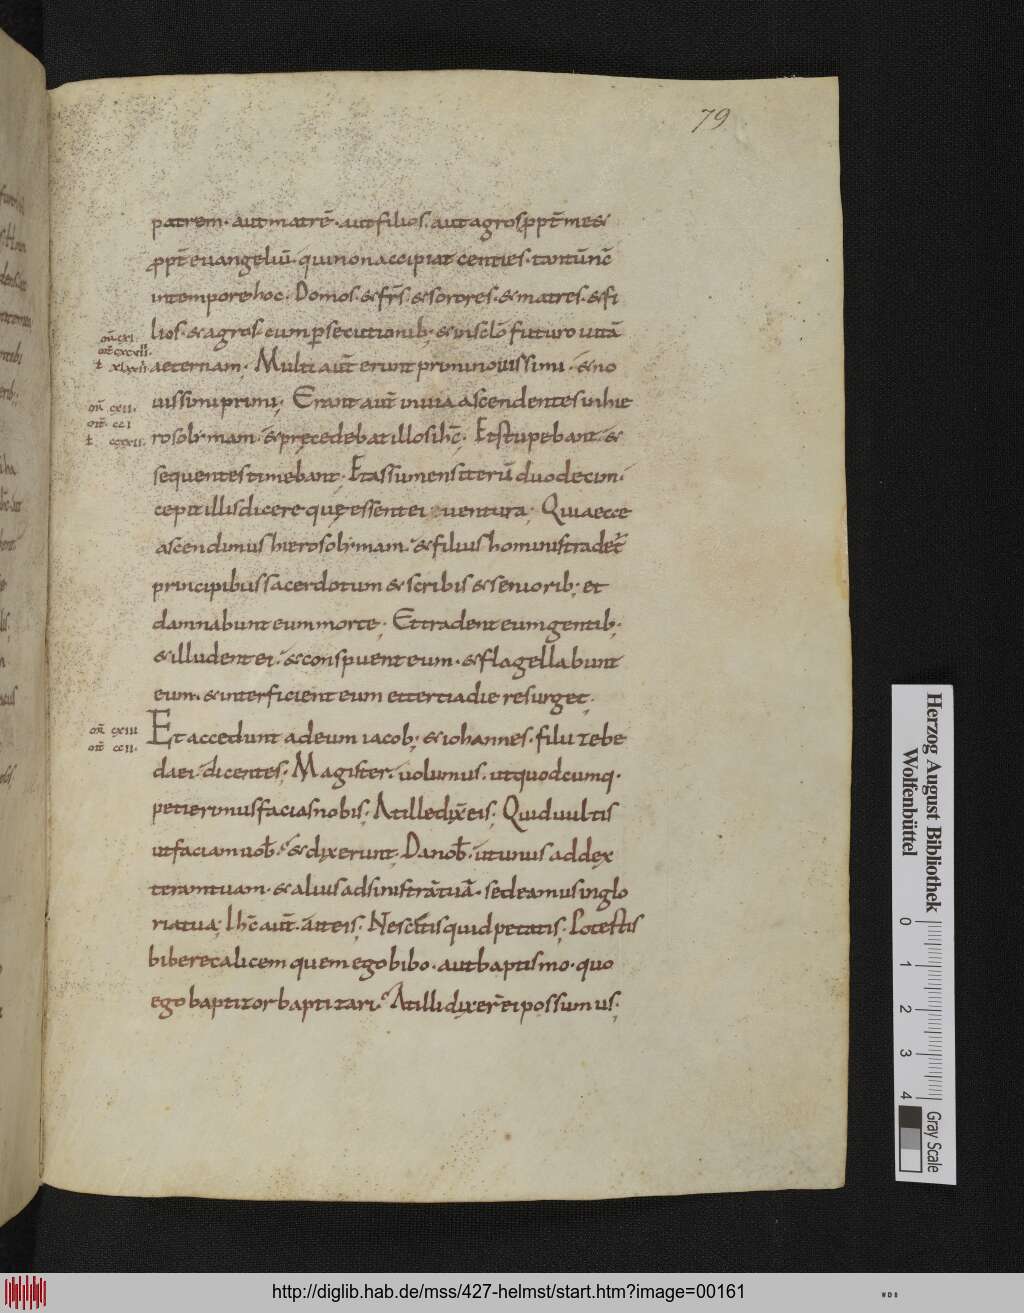 79
patrem· aut matrē· aut filios· aut agros ꝓpt̄ me &
ꝓpt̄ euangeliū· qui non accipiat centies· tantū nc̄
in tempore hoc· Domos· & fr̄s· & sorores· & matres· & fi
lios· & agros· cum ꝑsecutionib; & in sc̄lo futuro uitā
aeternam· Multi aut̄ erunt primi nouissimi· & no
uissimi primi; Erant aut̄ in uia ascendentes in hie
rosolimam· & pręcedebat illos ih̄c· Et stupebant· &
sequentes timebant· Et assumens iterū duodecim·
cepit illis dicere quę essent ei uentura· Quia ecce
ascendimus hierosolimam· & filius hominis tradet̄
principibus sacerdotum & scribis & seniorib; et
damnabunt eum morte; Et tradent eum gentib;
& illudent ei· & conspuent eum· & flagellabunt
eum· & interficient eum et tertia die resurget;
Et accedunt ad eum iacob; & iohannes· filii zebe
daei dicentes; Magister· uolumus· ut quodcumq·
petierimus facias nobis; At ille dix̄ eis; Quid uultis
ut faciam uob̄· & dixerunt· Da nob̄· ut unus ad dex
teram tuam· & alius ad sinistrā tuā· sedeamus in glo
ria tua; Ih̄c aut̄· ait eis; Nescitis quid petatis; Potestis
bibere calicem quem ego bibo· aut baptismo· quo
ego baptizor baptizari· At illi dixer̄ ei possumus;
m̄ cxi·
m̄ cxii·
m̄ cxiii
m̄ ccii·
Herzog August Bibliothek
Wolfenbüttel
0 1 2 3 4
Gray Scale
http://diglib.hab.de/mss/427-helmst/start.htm?image=00161